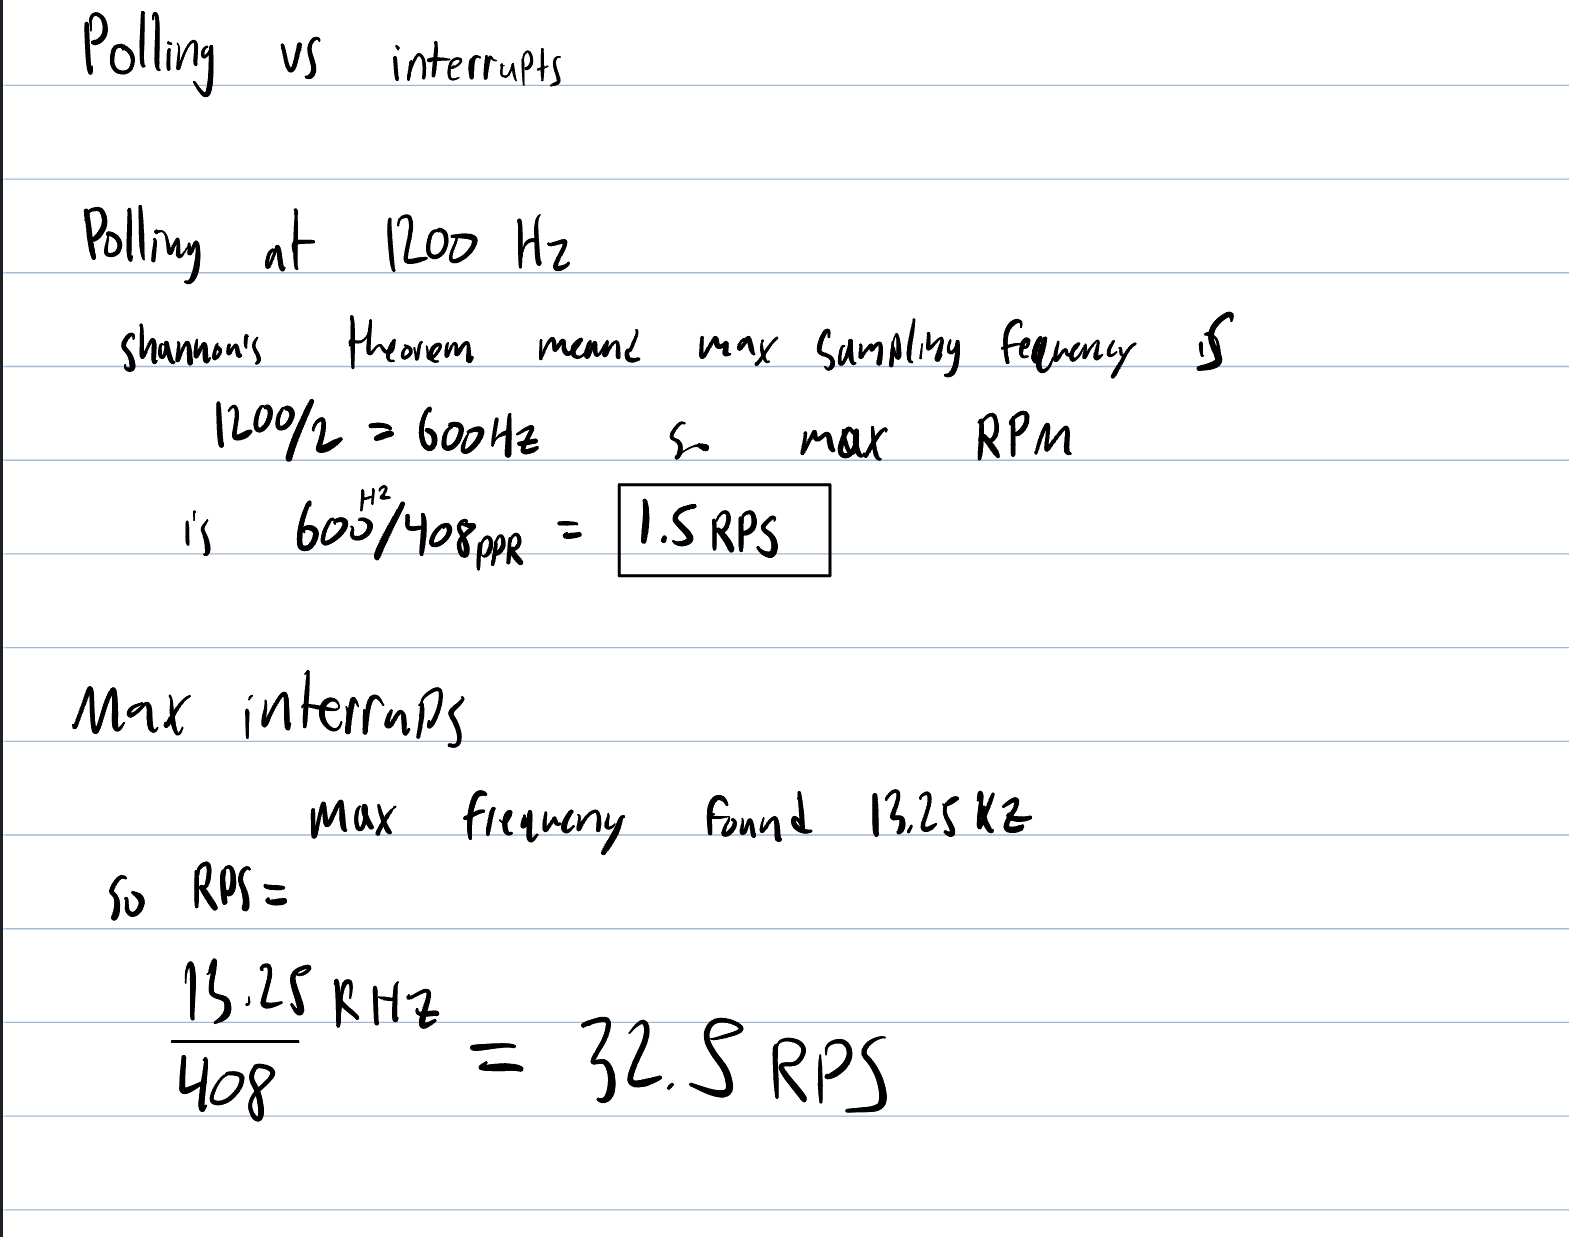 Polling vs interrupts
Polling at 1200 Hz
shannon's theorem meand max sampling fequency is
1200/2 = 600Hz so max RPM
is 600Hz/408PPR = 1.5 RPS
Max interrups
max frequency found 13.25 KZ
so RPS =
13.25 KHZ
408
= 32.5 RPS